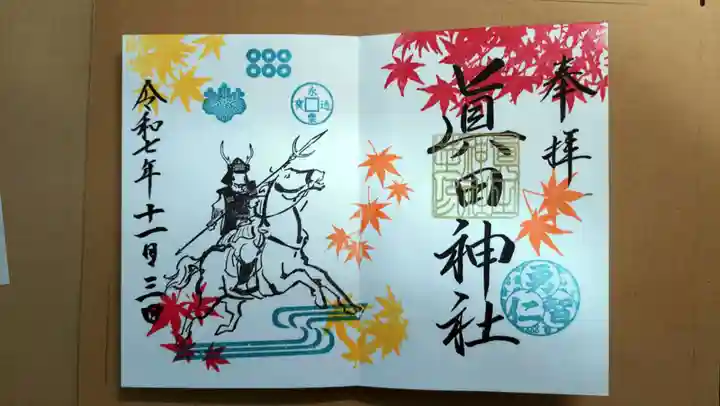 奉拝
眞田神社
智
仁
永
令和七年十一月三日